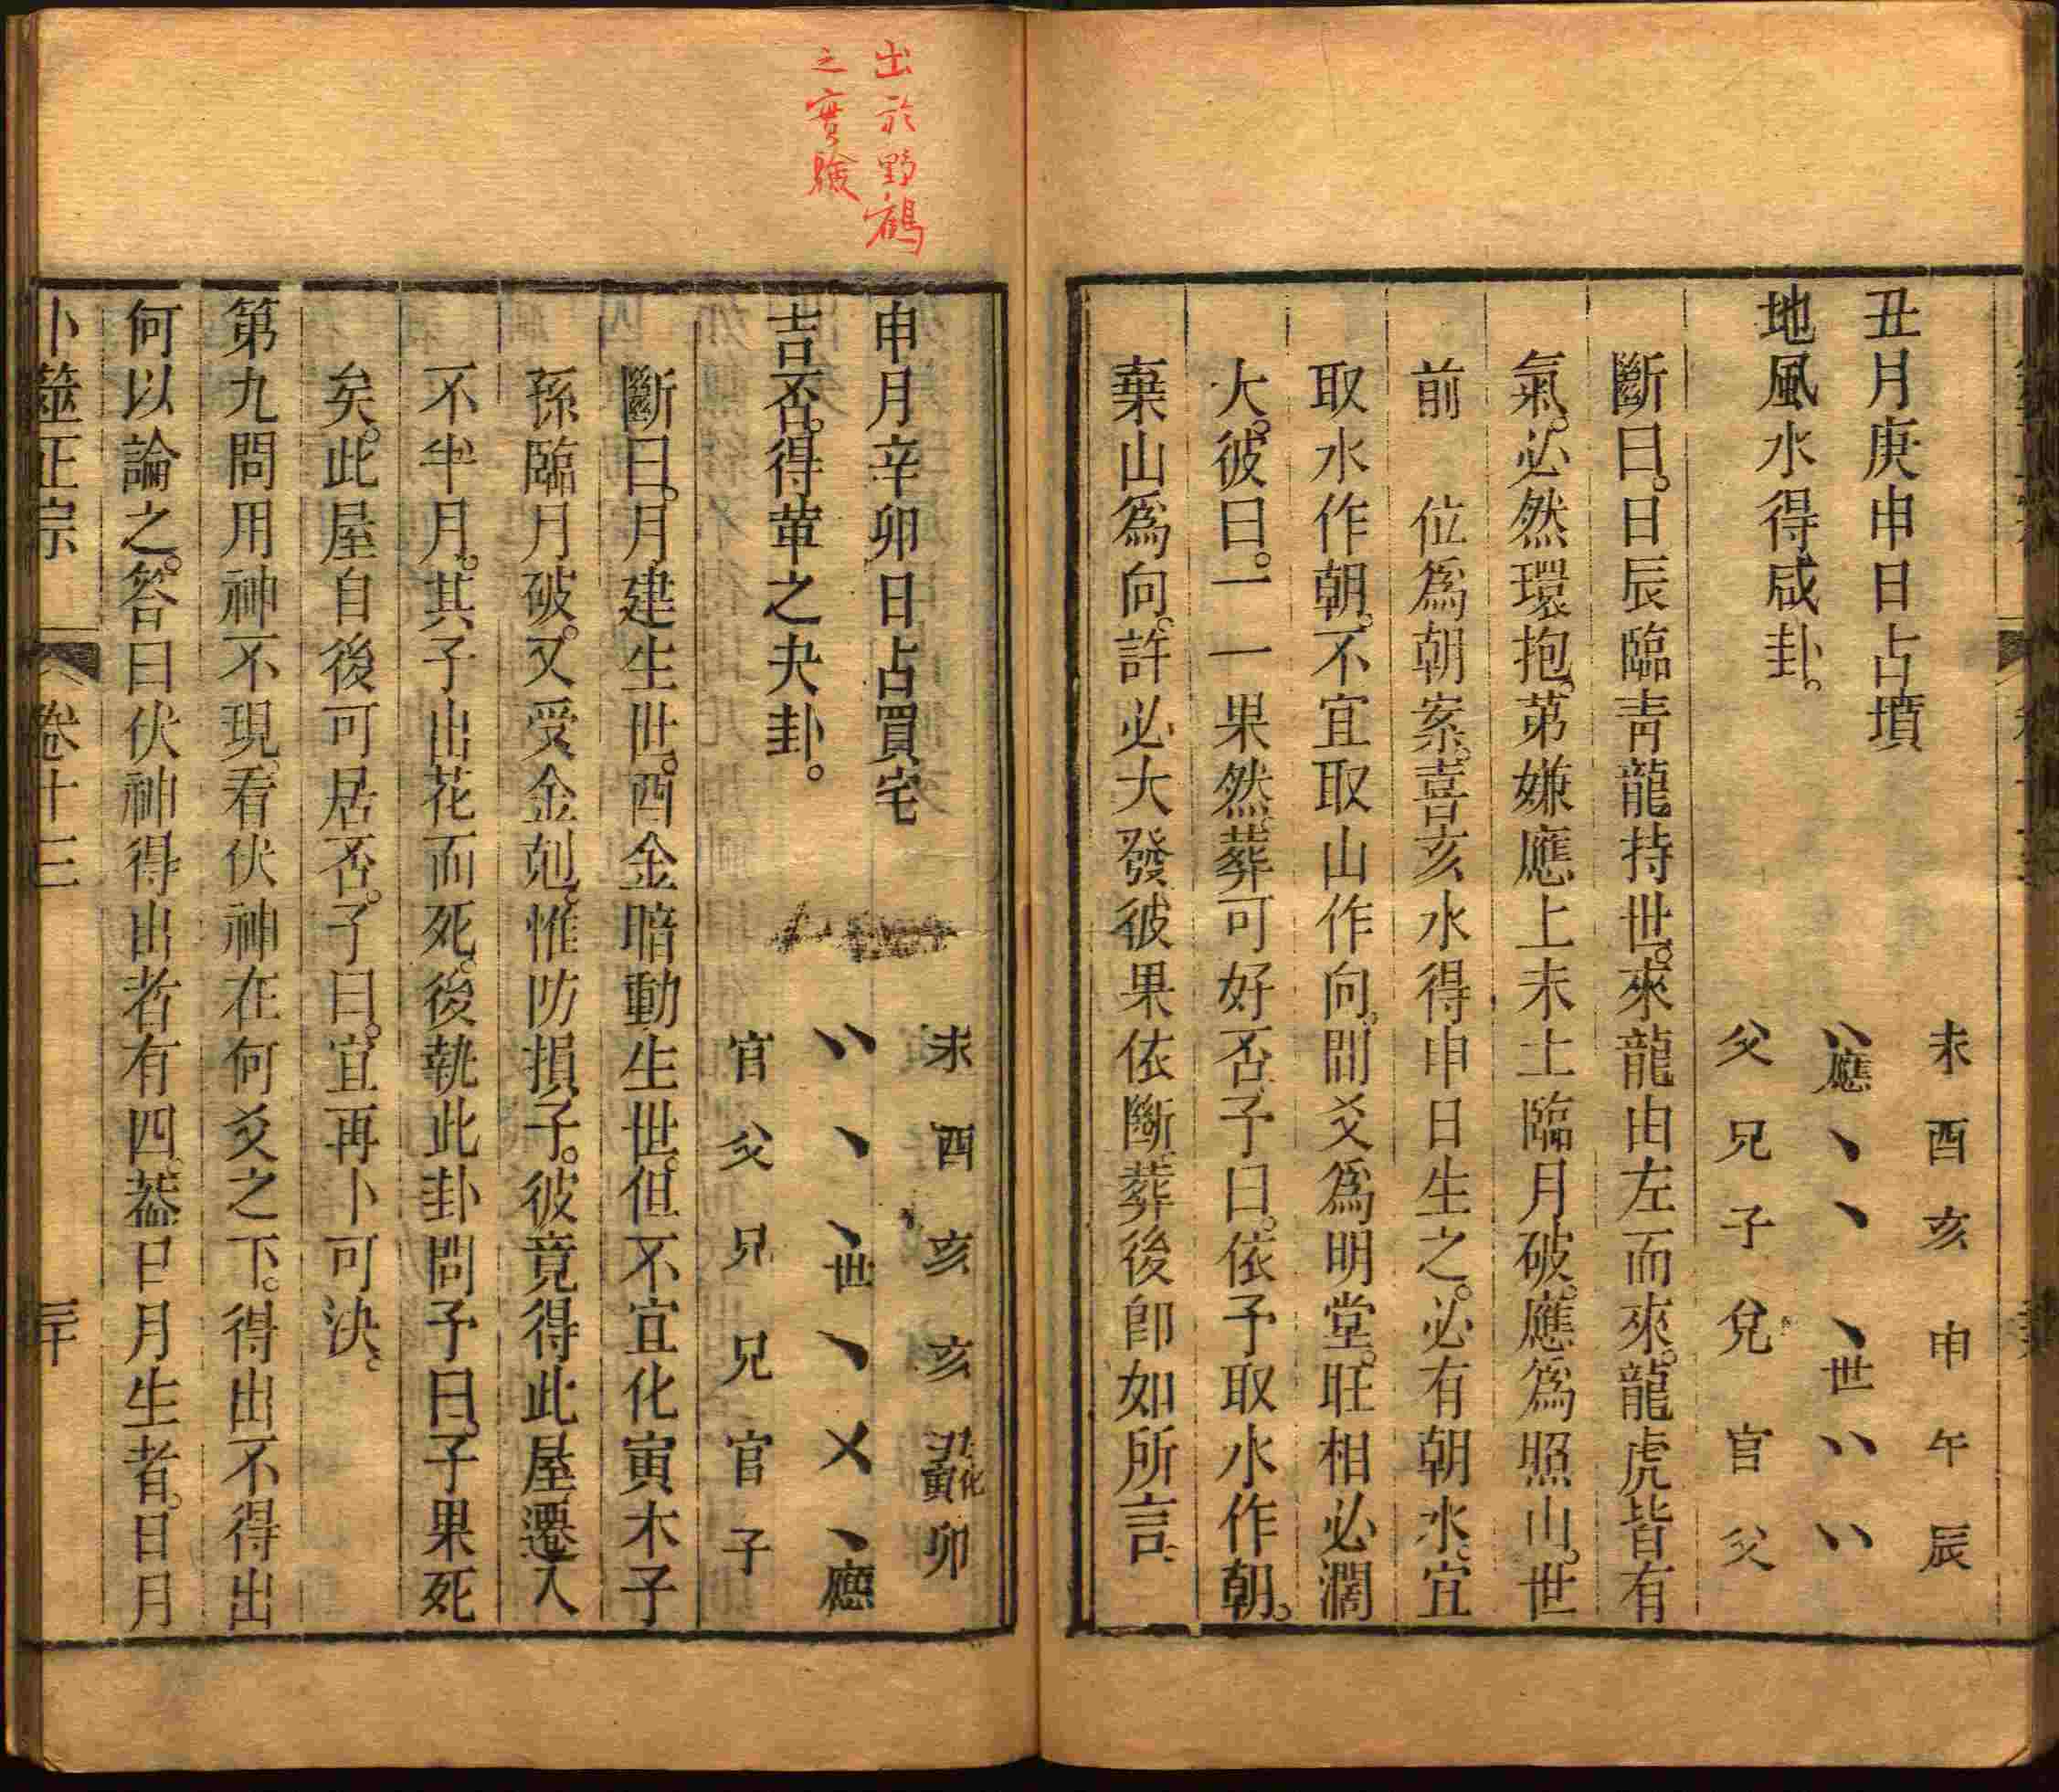 丑月庚申日占墳
地風水得咸卦。
未 酉 亥 申 午 辰
應 世
父 兄 子 兌 官 父
斷曰。日辰臨青龍持世。來龍由左而來。龍虎皆有
氣。必然環抱。第嫌應上未土臨月破。應爲照山。世
前 位爲朝案。喜亥水得申日生之。必有朝水。宜
取水作朝。不宜取山作向。間爻爲明堂。旺相必濶
大。彼曰。一一果然。葬可好否。予曰。依予取水作朝。
棄山爲向。許必大發。彼果依斷。葬後卽如所言。
出於野鶴
之實驗
申月辛卯日占買宅
吉否。得革之夬卦。
未 酉 亥 亥 丑化寅 卯
世 應
官 父 兄 兄 官 子
斷曰。月建生世。酉金暗動生世。但不宜化寅木子
孫臨月破。又受金剋。惟防損子。彼竟得此屋。遷入
不半月。其子出花而死。後執此卦問予曰。子果死
矣。此屋自後可居否。予曰。宜再卜可決。
第九問用神不現。看伏神在何爻之下。得出不得出
何以論之。答曰伏神得出者有四。葢日月生者。日月
卜筮正宗 卷十三 三十